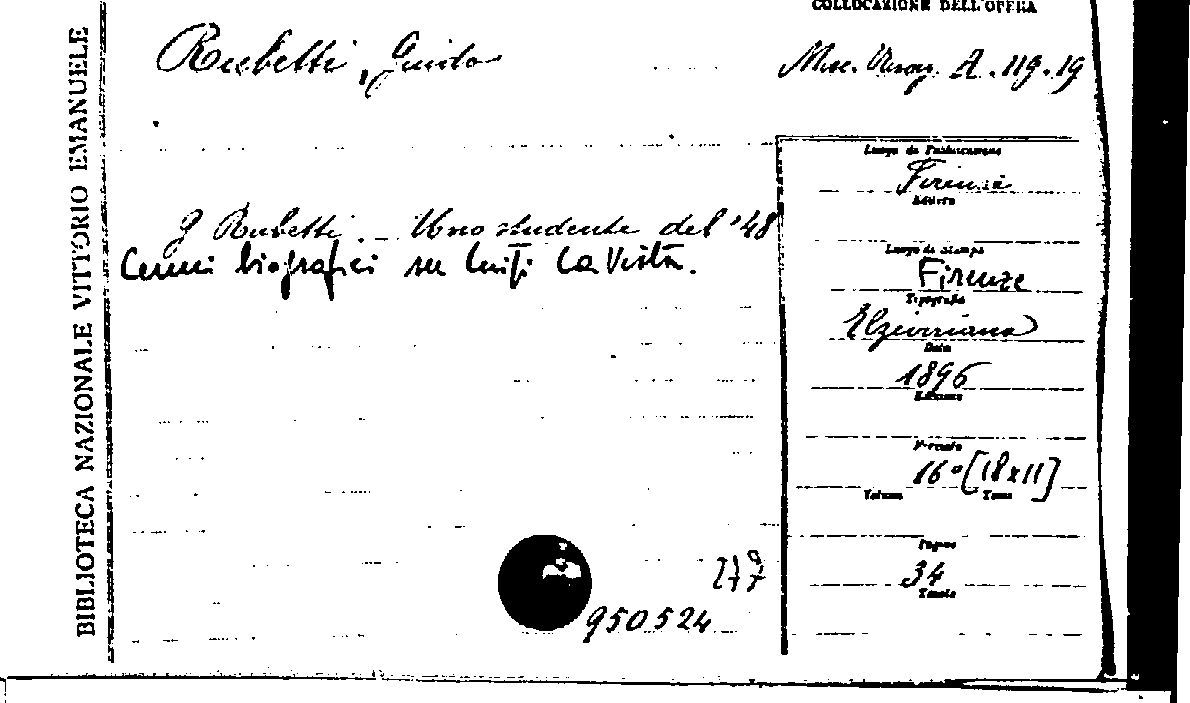 COLLOCAZIONE DELL'OPERA
BIBLIOTECA NAZIONALE VITTORIO EMANUELE
Rubetti, Guido
Misc. A. 119.19
G Rubetti. Uno studente del '48
Cenni biografici su Luigi La Vista.
Luogo di Pubblicazione
Firenze
Editore
Luogo di Stampa
Firenze
Tipografia
Elzeviriana
Data
1896
Edizione
Formato
16° [18x11]
Volume Tomo
Pagine
34
Tavole
950524